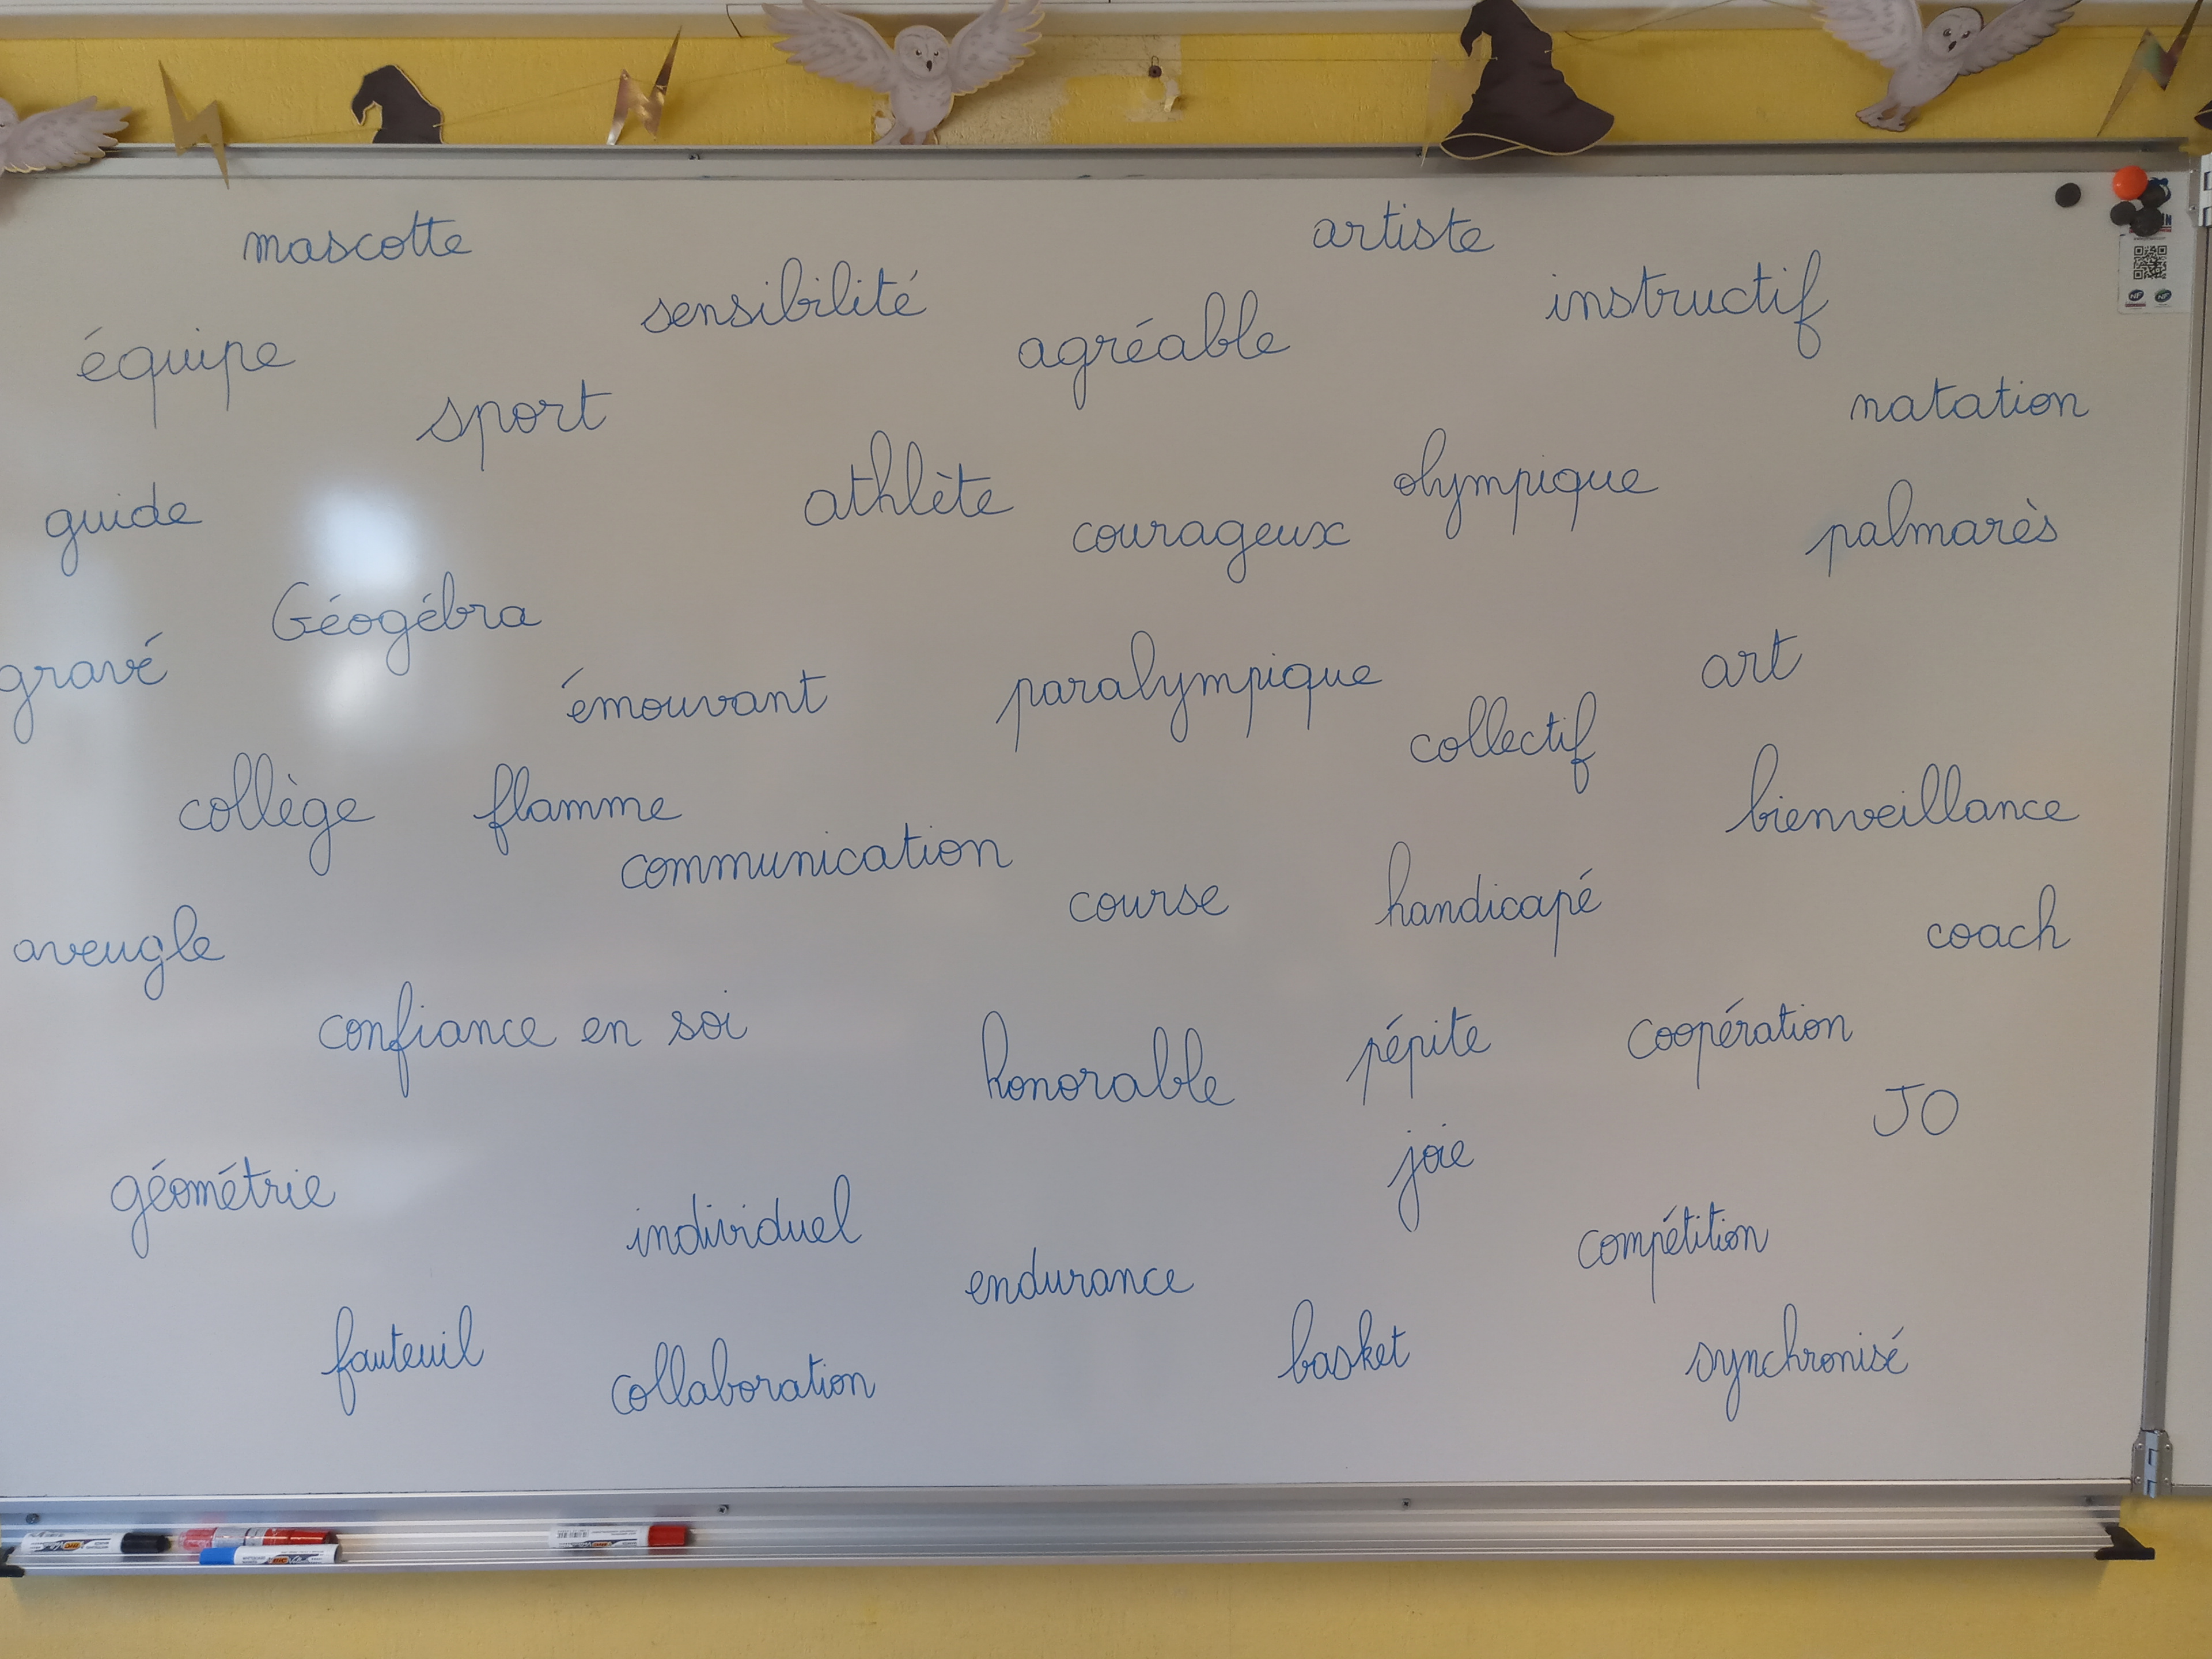 mascotte
artiste
sensibilité
instructif
équipe
agréable
sport
natation
guide
athlète
olympique
courageux
palmarès
Géogébra
gravé
émouvant
paralympique
art
collectif
collège
flamme
bienveillance
communication
course
handicapé
aveugle
coach
confiance en soi
honorable
pépite
coopération
JO
joie
géométrie
individuel
compétition
endurance
fauteuil
collaboration
basket
synchronisé